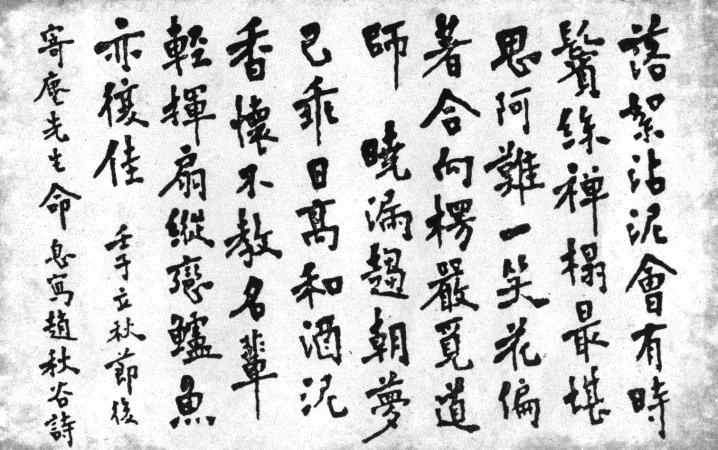 落絮沾泥會有時
鬢絲禪榻最堪
思阿難一笑花偏
著合向楞嚴覓道
師 曉漏趨朝夢
已乖日高和酒泥
香懷不教名輩
輕揮扇縱戀鱸魚
亦復佳 壬子立秋節後
寄庵先生命 息寫趙秋谷詩